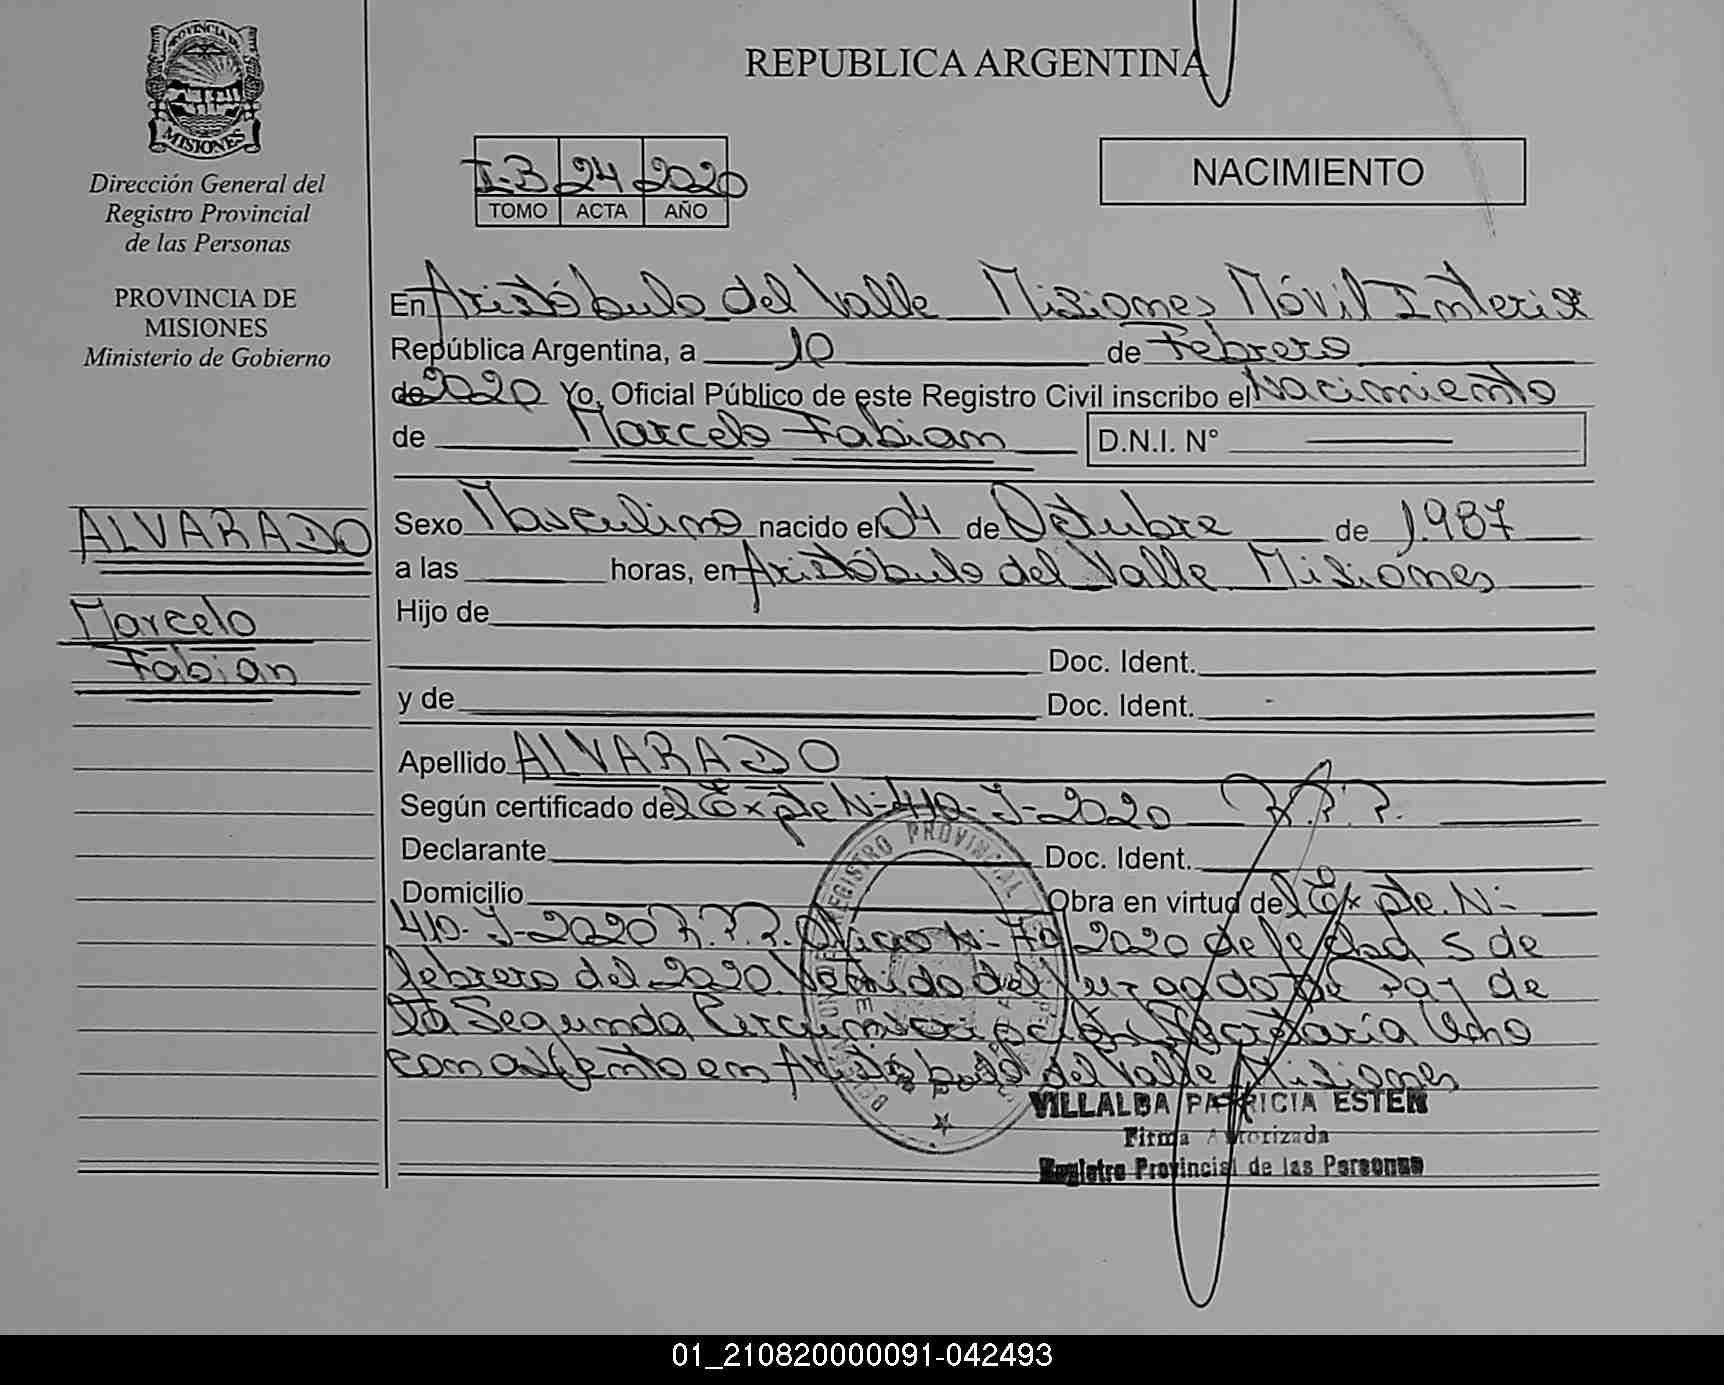 PROVINCIA DE
MISIONES
Dirección General del
Registro Provincial
de las Personas
PROVINCIA DE
MISIONES
Ministerio de Gobierno
ALVARADO
Marcelo
Fabian
REPUBLICA ARGENTINA
I-B 24 2020
TOMO ACTA AÑO
NACIMIENTO
En Aristóbulo del Valle Misiones Móvil Interior
República Argentina, a 10 de Febrero
de 2020 Yo, Oficial Público de este Registro Civil inscribo el Nacimiento
de Marcelo Fabian D.N.I. N°
Sexo Masculino nacido el 04 de Octubre de 1.987
a las horas, en Aristóbulo del Valle Misiones
Hijo de
Doc. Ident.
y de Doc. Ident.
Apellido ALVARADO
Según certificado del Expte N-410-J-2020 R.P.P.
Declarante Doc. Ident.
Domicilio Obra en virtud del Expte. N-
410-J-2020 R.P.P. Oficio N- 2020 de fecha 5 de
febrero del 2020. Venido del Juzgado de Paz de
la Segunda Circunscripción Secretaría Uno
con asiento en Aristóbulo del Valle Misiones
REGISTRO PROVINCIAL
VILLALBA PATRICIA ESTER
Firma Autorizada
Registro Provincial de las Personas
01_210820000091-042493